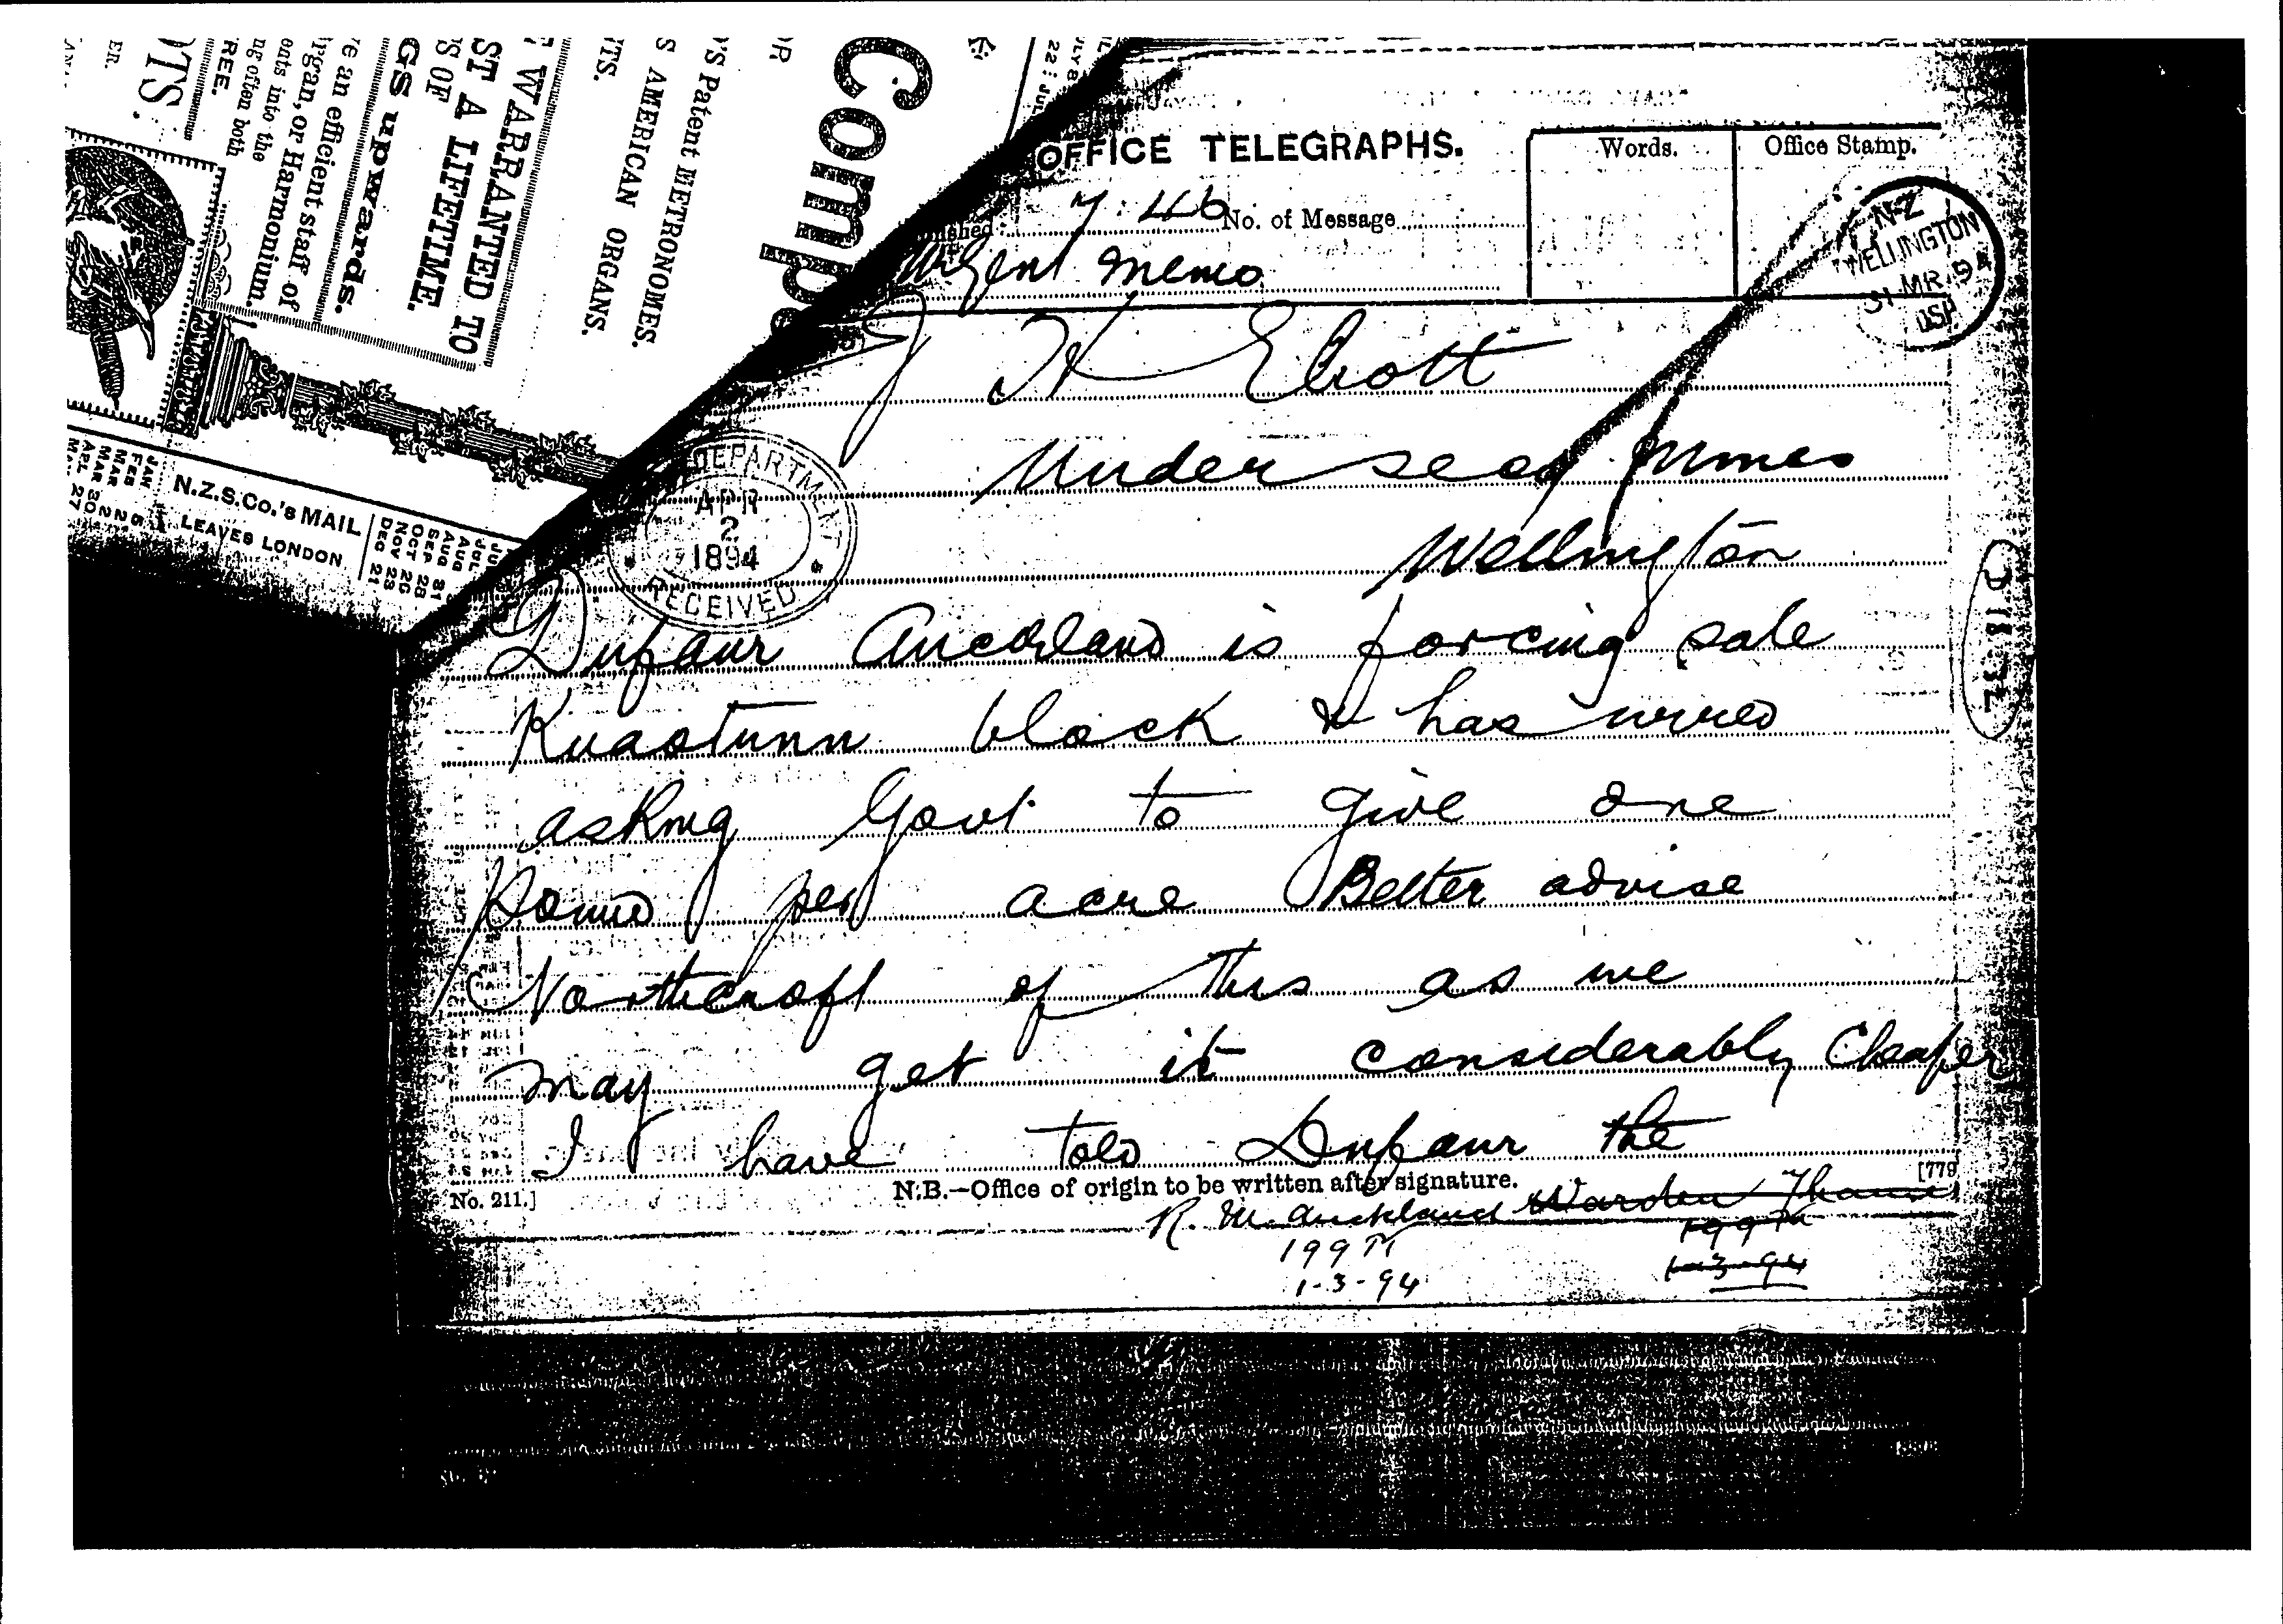 OFFICE TELEGRAPHS.
Words.
Office Stamp.
No. of Message
Urgent Memo
N-Z
WELLINGTON
31 MR 94
J H Eliott
Under secy Mines
Wellington
DEPARTMENT
APR
2
1894
RECEIVED
Dufaur Auckland is forcing sale
Kuaotunu block & has wired
asking Govt to give one
Pound per acre Better advise
Northcroft of this as we
may get it considerably cheaper
I have told Dufaur the
No. 211.]
N.B.—Office of origin to be written after signature.
[779
R. M. Auckland Warden Thames
199
1-3-94
1-3-94
Comp
'S Patent METRONOMES.
S AMERICAN ORGANS.
TS.
WARRANTED TO
ST A LIFETIME.
S OF
GS upwards.
ve an efficient staff of
rgan, or Harmonium.
ents into the
ng often both
REE.
OTS.
ER.
N.Z.S.Co.'s MAIL
LEAVES LONDON
JAN
FEB
MAR
MAR 30
APL 27
AUG
AUG 31
SEP 28
OCT 26
NOV 23
DEC 21